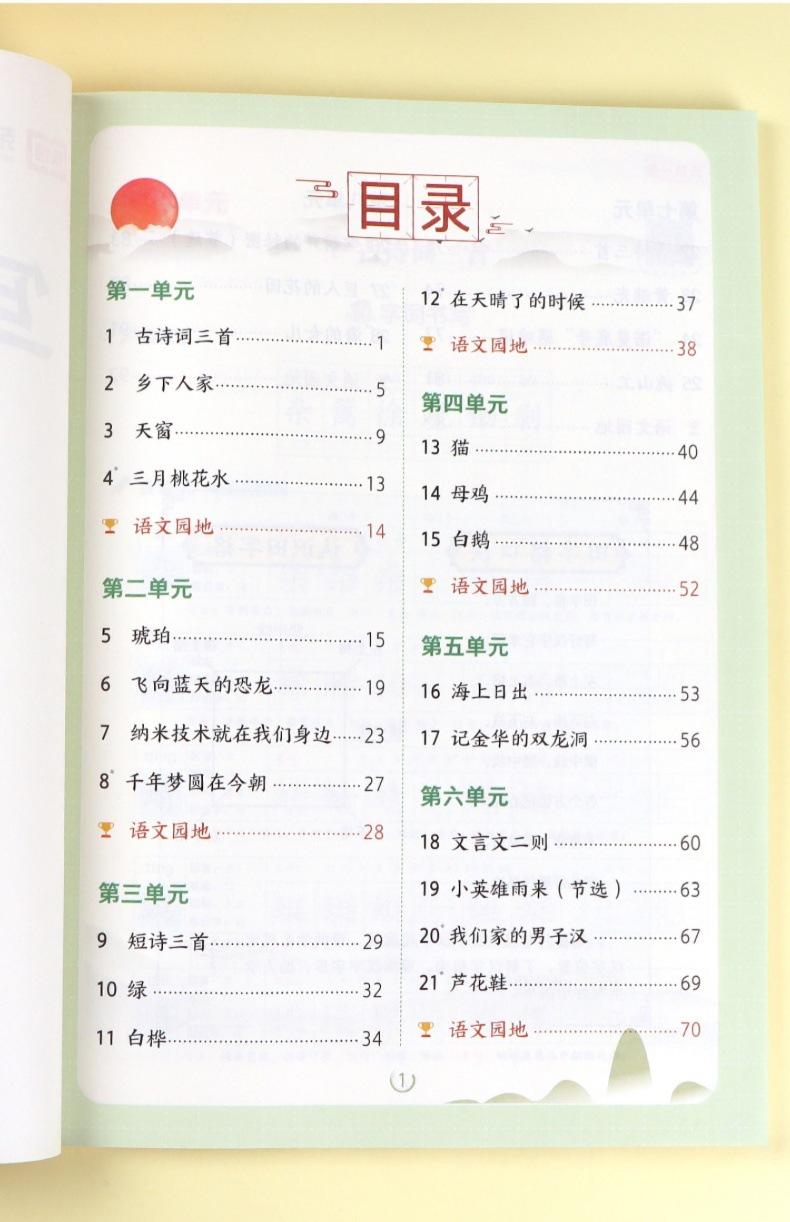 目录
第一单元
1 古诗词三首 1
2 乡下人家 5
3 天窗 9
4* 三月桃花水 13
语文园地 14
第二单元
5 琥珀 15
6 飞向蓝天的恐龙 19
7 纳米技术就在我们身边 23
8* 千年梦圆在今朝 27
语文园地 28
第三单元
9 短诗三首 29
10 绿 32
11 白桦 34
12* 在天晴了的时候 37
语文园地 38
第四单元
13 猫 40
14 母鸡 44
15 白鹅 48
语文园地 52
第五单元
16 海上日出 53
17 记金华的双龙洞 56
第六单元
18 文言文二则 60
19 小英雄雨来（节选） 63
20* 我们家的男子汉 67
21* 芦花鞋 69
语文园地 70
1